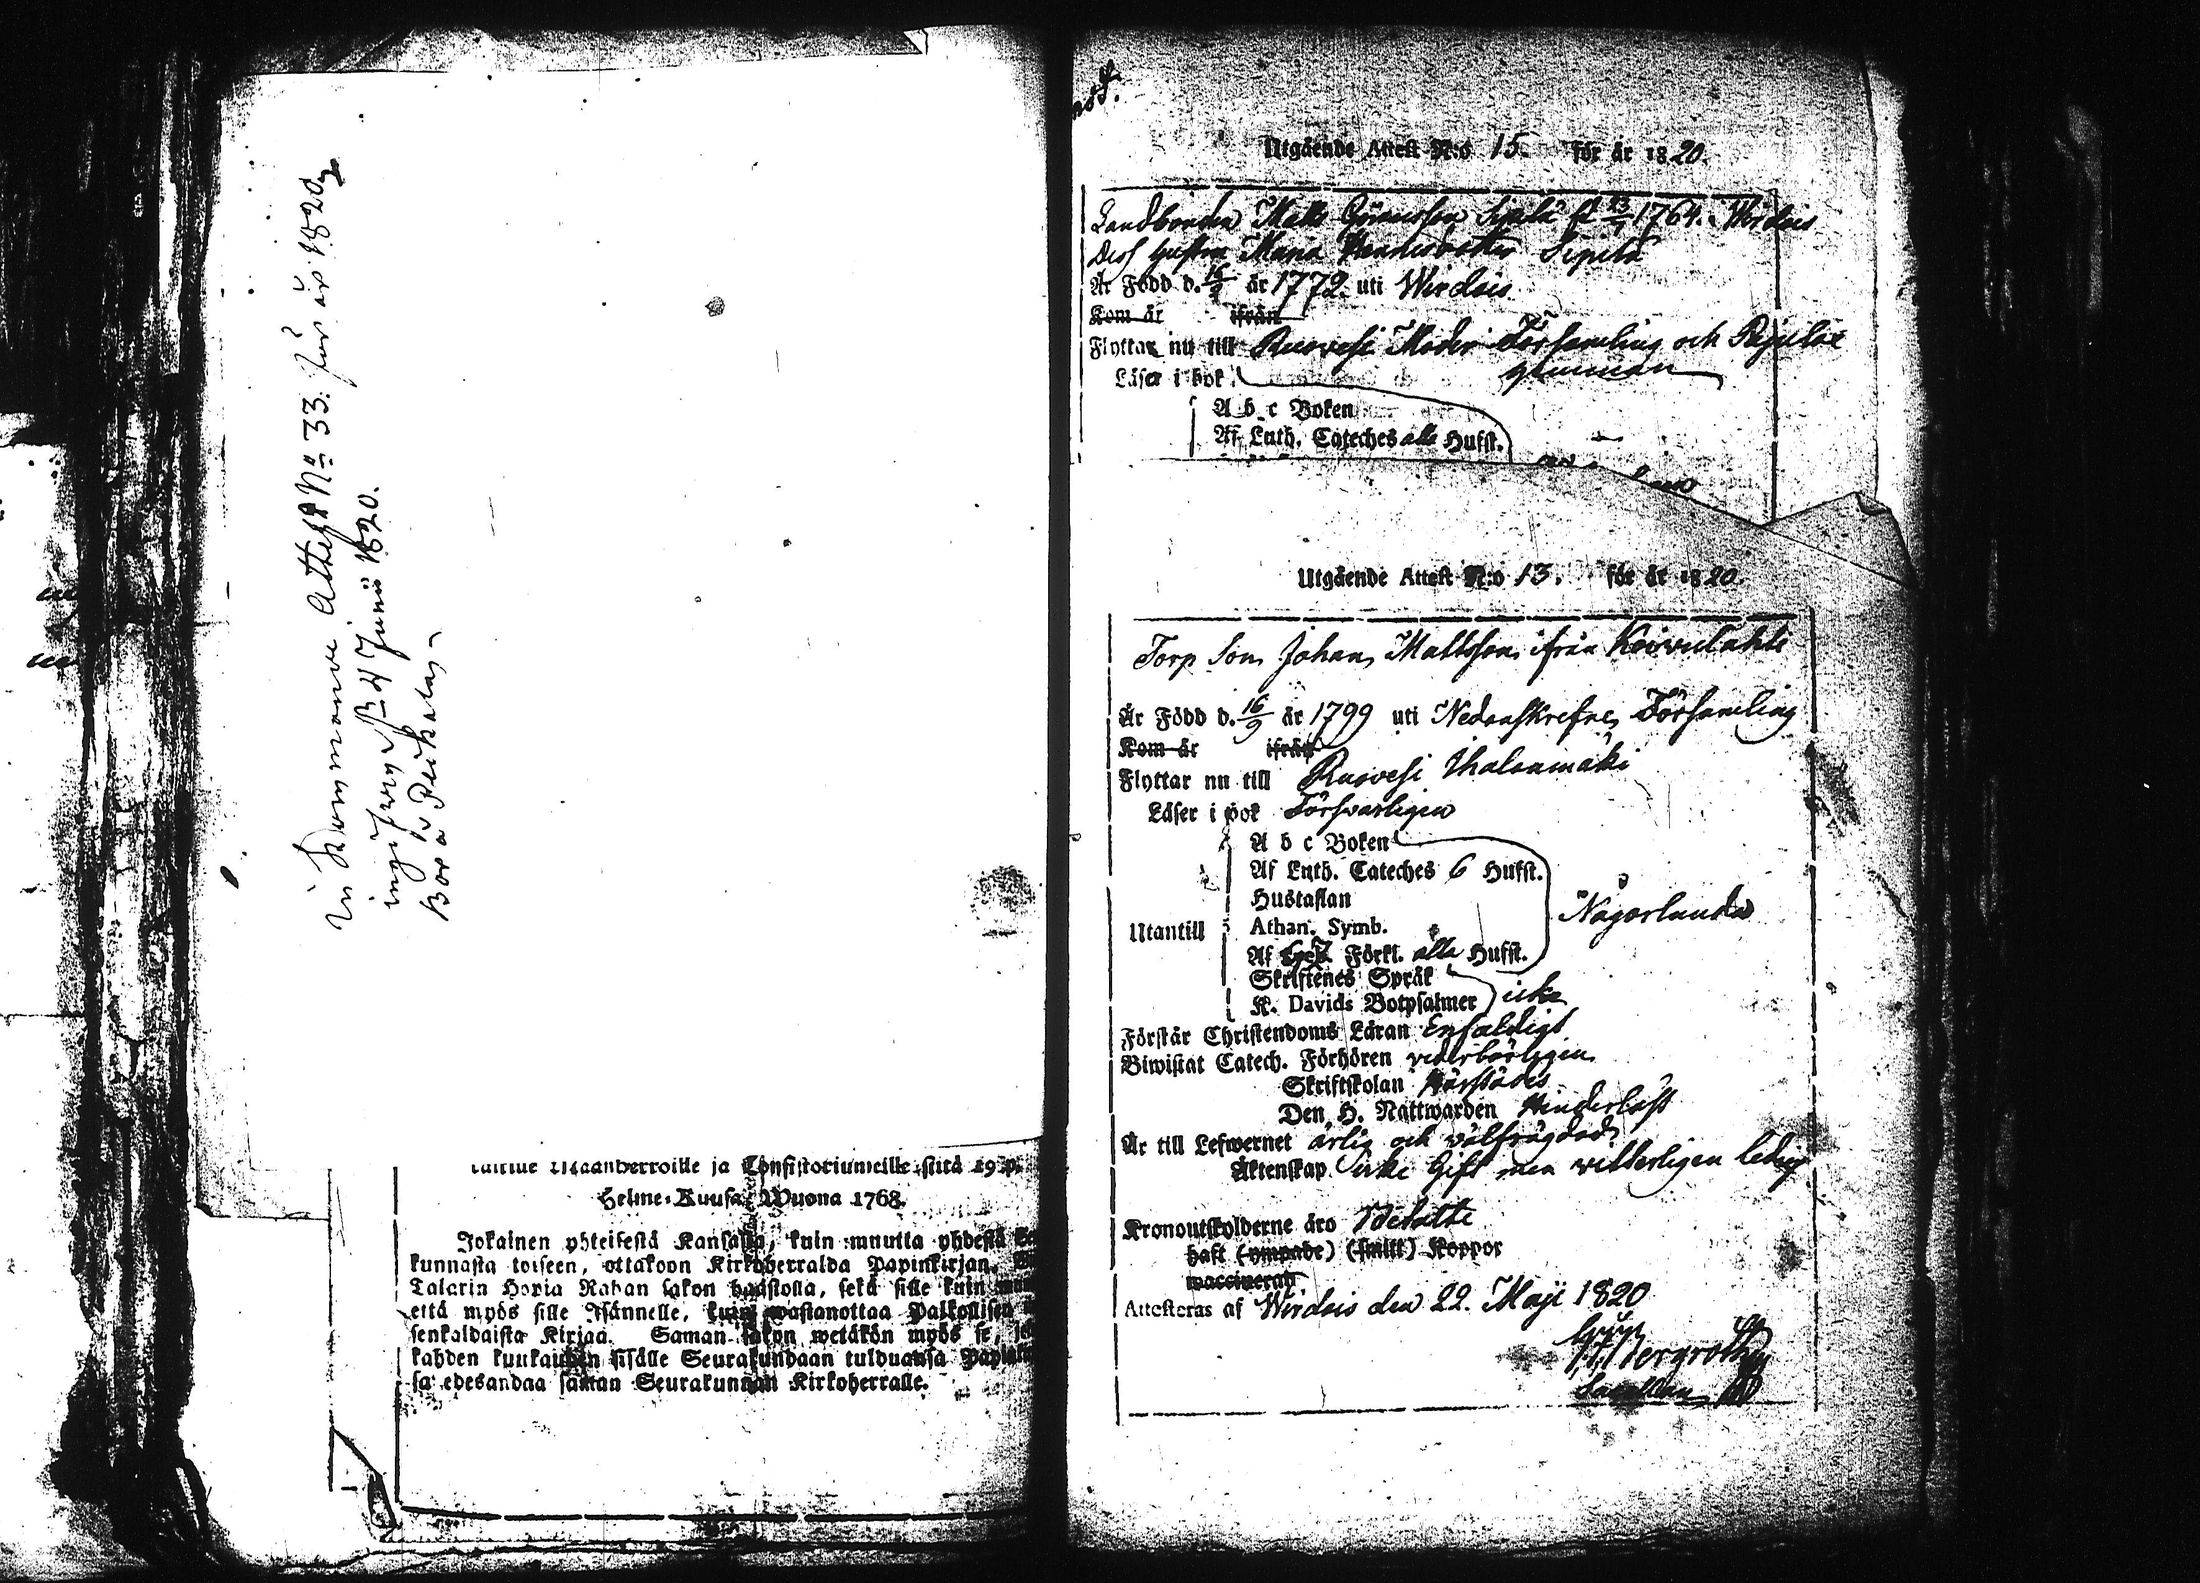 In kommande Attest No 33. för år 1820
ingifwen d 4 Junii 1820.
Bor å Peikalas
tullue Maanherroille ja Consistoriumeille siitä 19 p.
Helme-Kuusa, Wuona 1768.
Jokainen yhteisestä Kansasta, kuin muutta yhdestä
kunnasta toiseen, ottakoon Kirkoherralda Papinkirjan.
Talarin Hopia Rahan sakon haastolla, sekä sille kuin
että myös sille Isännelle, kuin wastanottaa Palkollisen
senkaldaista Kirjaa. Saman sakon wetäkön myös se,
kahden kuukauden sisälle Seurakundaan tulduansa
sa edesandaa saman Seurakunnan Kirkoherralle.
Utgående Attest N:o 15. för år 1820.
Landbonden Matts Göransson Sipilä fd 23/7 1764. Wirdois
Dess hustru Maria Hendersdotter Sipilä
Är Född d. 16/ år 1772. uti Wirdois
Kom år ifrån
Flyttar nu till Ruovesi Moder Församling och Pajulax
Läser i bok
A b c Boken
Af Luth. Cateches alla Hufst.
Utgående Attest N:o 13. för år 1820.
Torp Son Johan Mattsson ifrån Koivulahti
Är Född d. 16/9 år 1799 uti Nedanskrefne Församling
Kom år ifrån
Flyttar nu till Ruovesi Ihalanmäki
Läser i bok Försvarligen
A b c Boken
Af Luth. Cateches 6 Hufst.
Hustaflan
Någorlunda
Utantill Athan. Symb.
Af Förkl. alla Hufst.
Skriftenes Språk
K. Davids Botpsalmer icke
Förstår Christendoms Läran Enfaldigt
Biwistat Catech. Förhören vederbörligen
Skriftskolan härstädes
Den H. Nattwarden Hinderlöst
Är till Lefwernet ärlig och välfrägdad
Äktenskap icke Gift men witterligen ledig
Kronoutskylderne äro Betalte
haft (ympade) (smitt) Koppor
waccinerad
Attesteras af Wirdois den 22. Maji 1820
Bergroth
Sacellan